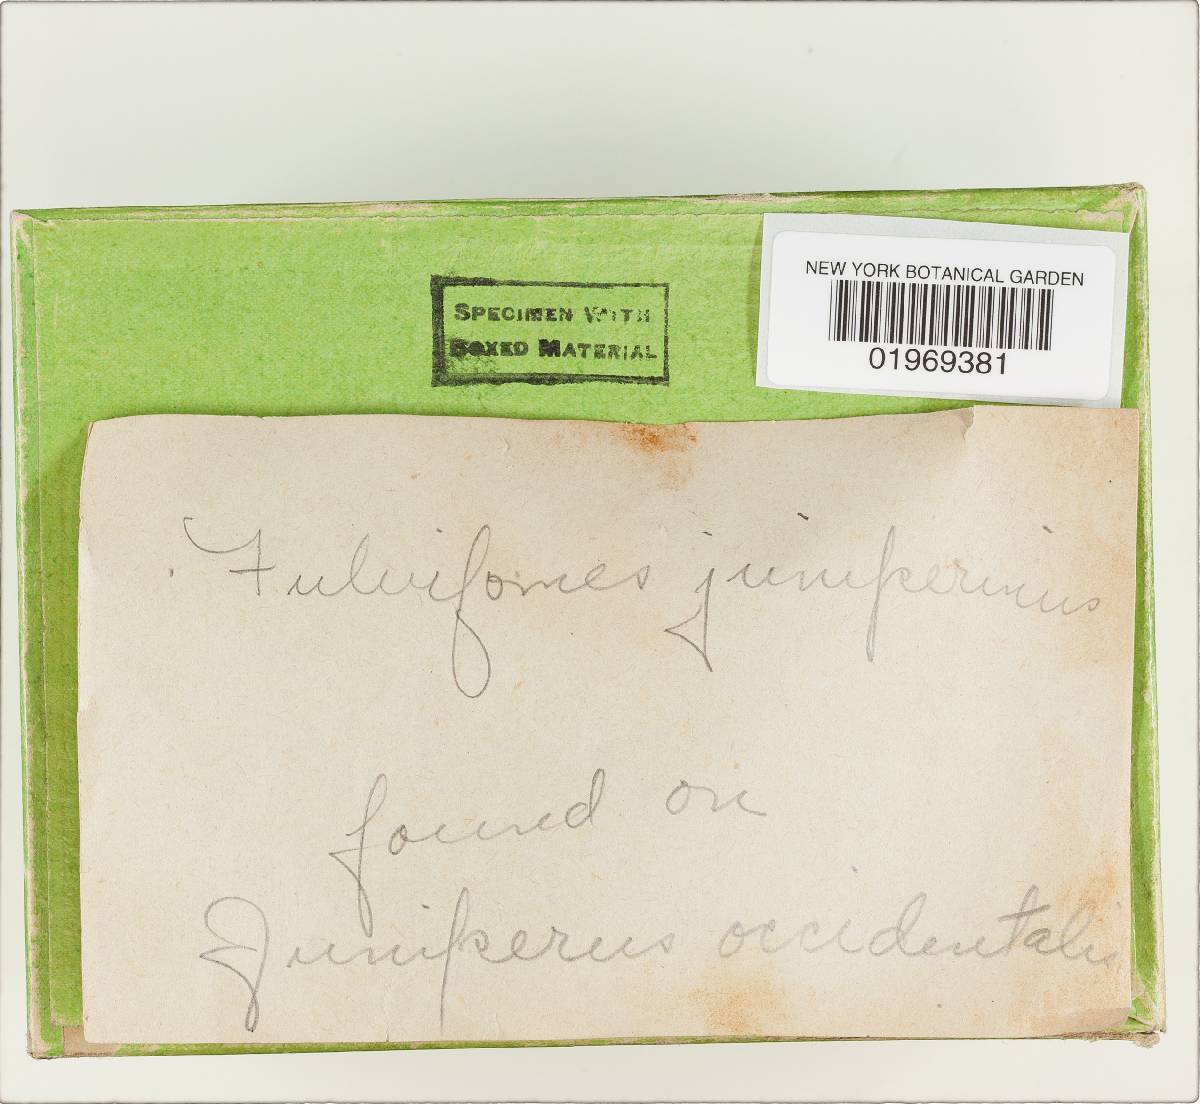 SPECIMEN WITH
BOXED MATERIAL
NEW YORK BOTANICAL GARDEN
01969381
Fulvifomes juniperinus
found on
Juniperus occidentalis